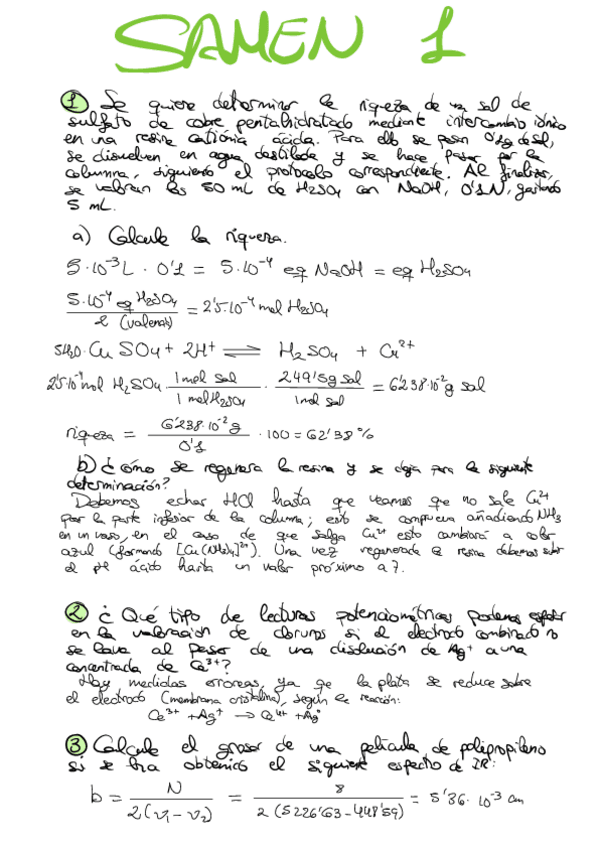 SAMEN 1
1 Se quiere determinar la riqueza de una sal de
sulfato de cobre pentahidratado mediante intercambio iónico
en una resina catiónica ácida. Para ello se pesan 0'1g de sal,
se disuelven en agua destilada y se hace pasar por la
columna, siguiendo el protocolo correspondiente. Al finalizar,
se valoran los 50 mL de H2SO4 con NaOH, 0'1N, gastando
5 mL.
a) Calcule la riqueza.
5·10⁻³L · 0'1 = 5·10⁻⁴ eq NaOH = eq H2SO4
5·10⁻⁴ eq H2SO4 / 2 (valencia) = 2'5·10⁻⁴ mol H2SO4
5H2O·CuSO4 + 2H⁺ ⇌ H2SO4 + Cu²⁺
2'5·10⁻⁴ mol H2SO4 · 1 mol sal / 1 mol H2SO4 · 249'5g sal / 1 mol sal = 6'238·10⁻² g sal
riqueza = 6'238·10⁻² g / 0'1 · 100 = 62'38 %
b) ¿Cómo se regenera la resina y se deja para la siguiente
determinación?
Debemos echar HCl hasta que veamos que no sale Cu²⁺
por la parte inferior de la columna; esto se comprueba añadiendo NH3
en un vaso, en el caso de que salga Cu²⁺ esto cambiará a color
azul (formando [Cu(NH3)4]²⁺). Una vez regenerada la resina debemos subir
el pH ácido hasta un valor próximo a 7.
2 ¿Qué tipo de lecturas potenciométricas podemos esperar
en la valoración de cloruros si el electrodo combinado no
se lava al pasar de una disolución de Ag⁺ a una
concentrada de Ce³⁺?
Hay medidas erróneas, ya que la plata se reduce sobre
el electrodo (membrana cristalina), según la reacción:
Ce³⁺ + Ag⁺ → Ce⁴⁺ + Ag⁰
3 Calcule el grosor de una película de polipropileno
si se ha obtenido el siguiente espectro de IR:
b = N / 2(ν1 - ν2) = 8 / 2(5226'63 - 448'59) = 5'86·10⁻³ cm